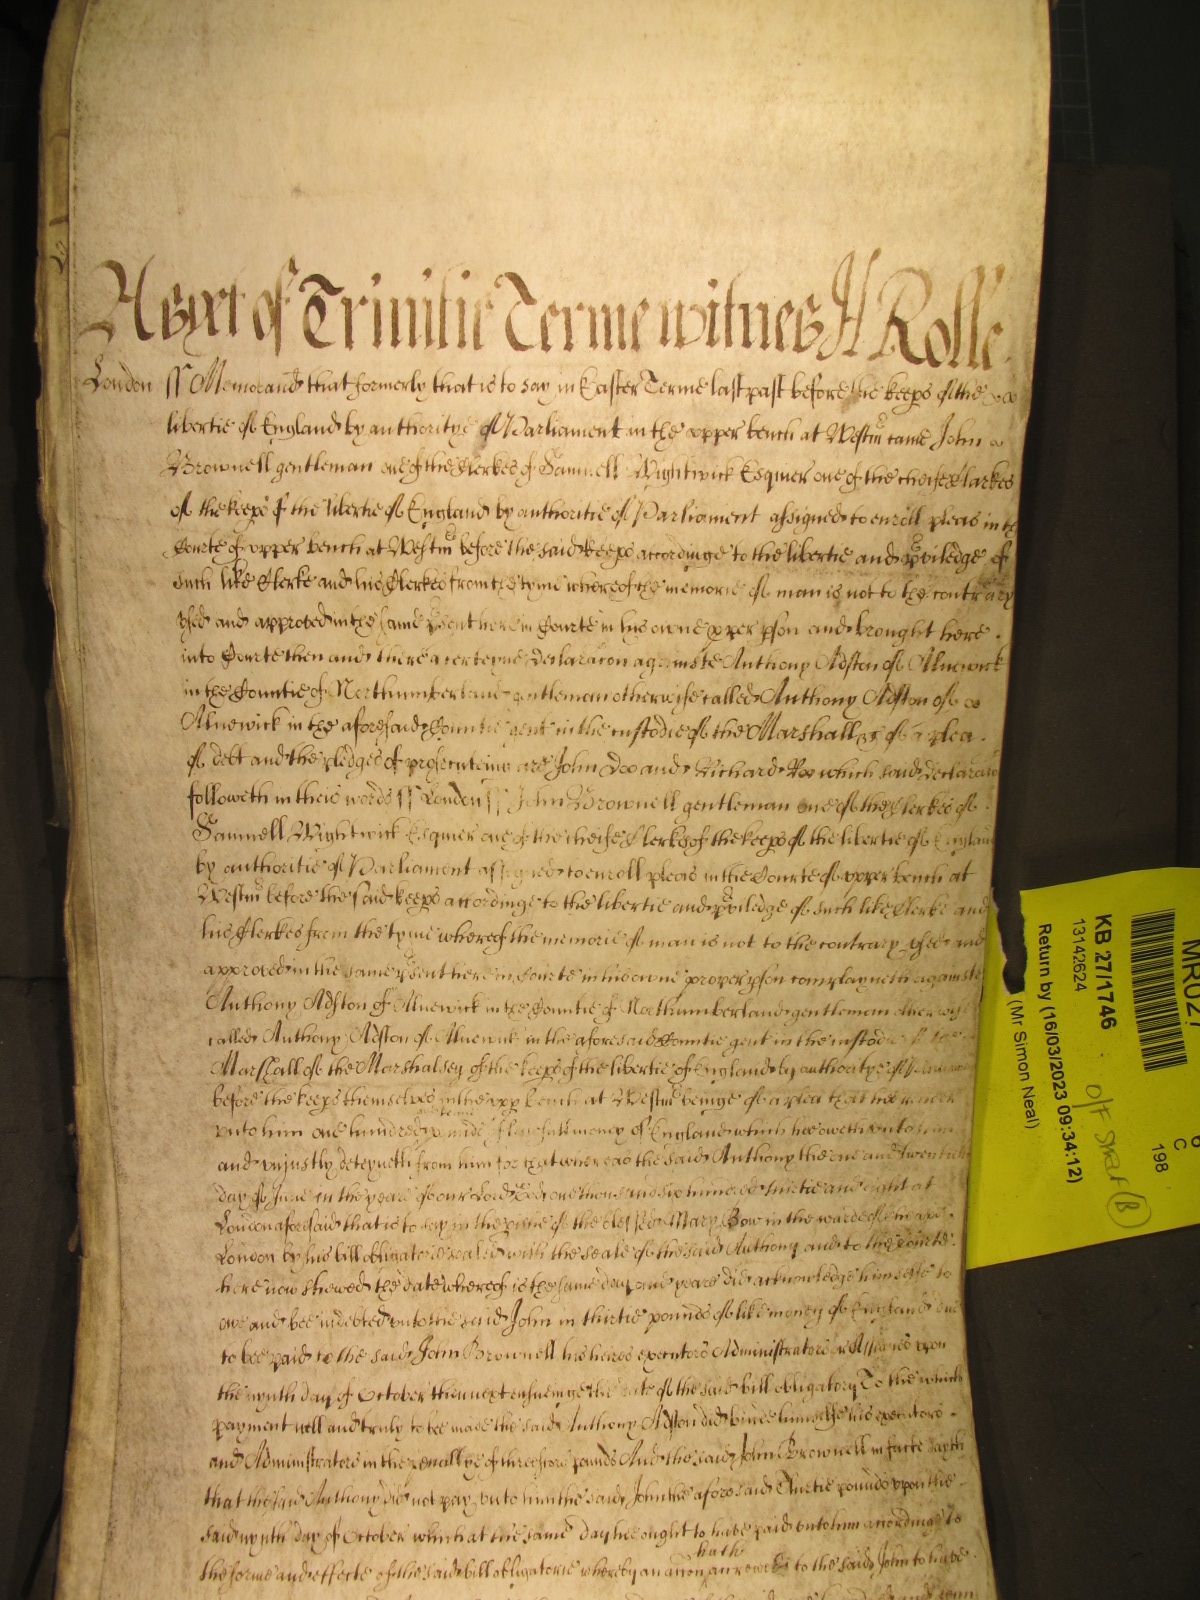 As yet of Trinitie Terme witnes H Rolle
London ss Memorand that formerly that is to say in Easter Terme last past before the keeps of the
libertie of England by authoritye of Parliament in the upper bench at Westm came John
Brownell gentleman one of the Clerkes of Samuell Wightwick Esquier one of the cheife Clarkes
of the keeps of the libertie of England by authoritie of Parliament assigned to enroll pleas in the
Courte of upper bench at Westm before the said keeps accordinge to the libertie and priviledge of
such like Clerke and his Clerkes from the tyme whereof the memorie of man is not to the contrary
used and approved in the same present here in Courte in his owne pson and brought here
into Courte then and there a certeyne declaracon againste Anthony Adston of Alnewick
in the Countie of Northumberland gentleman otherwise called Anthony Adston of
Alnewick in the aforesaid Countie gent in the custodie of the Marshall &c of a plea
of debt and the pledges of prosecuteing are John Doo and Richard Roo which said declaracon
followeth in theis words ss London ss John Brownell gentleman one of the Clerkes of
Samuell Wightwick Esquier one of the cheife Clerks of the keeps of the libertie of England
by authoritie of Parliament assigned to enroll pleas in the Courte of upper bench at
Westm before the said keeps accordinge to the libertie and priviledge of such like Clerke and
his Clerkes from the tyme whereof the memorie of man is not to the contrary used and
approved in the same present here in Courte in his owne proper pson complayneth againste
Anthony Adston of Alnewick in the Countie of Northumberland gentleman otherwise
called Anthony Adston of Alnewick in the aforesaid Countie gent in the custodie of the
Marshall of the Marshalsey of the keeps of the libertie of England by authoritye of Parliament
before the keeps themselves in the upp bench at Westm beinge of a plea that hee render
unto him one hundred pounds of lawfull money of England which hee oweth unto him
and unjustly deteyneth from him for that whereas the said Anthony the one and twentieth
day of June in the yeare of our Lord God one thousand six hundred thirtie and eight at
London aforesaid that is to say in the pishe of the blessed Mary Bow in the warde of Cheape
London by his bill obligatorie sealed with the seale of the said Anthony and to the Courte
here now shewed the date whereof is the same day and yeare did acknowledge himselfe to
owe and bee indebted unto the said John in thirtie pounds of like money of England to
to bee paid to the said John Brownell his heires executors Administrators or Assignes upon
the nynth day of October then next ensueinge the date of the said bill obligatory To the which
payment well and truly to bee made the said Anthony Adston did binde himselfe his executors
and Administrators in the penaltye of threescore pounds And the said John Brownell in facte sayth
that the said Anthony did not pay unto him the said John the aforesaid thirtie pounds upon the
said nynth day of October which at the same day hee ought to have paid unto him accordinge to
the forme and effecte of the said bill obligatorie whereby an accon hath accrewed to the said John to have
MR027
KB 27/1746
13142624
Return by (16/03/2023 09:34:12)
(Mr Simon Neal)
O/F Shelf B
C
198